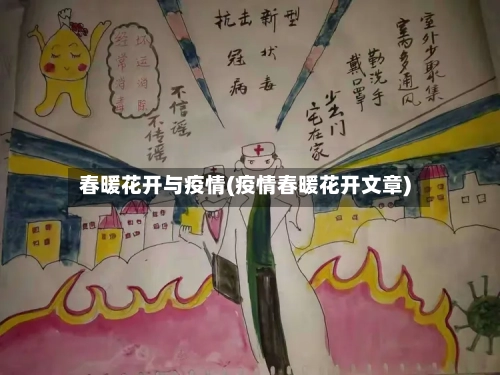 抗击新型
冠状
病毒
室外少聚集
室内多通风
勤洗手
戴口罩
少出门
宅在家
不信谣
不传谣
经常消毒
春暖花开与疫情(疫情春暖花开文章)